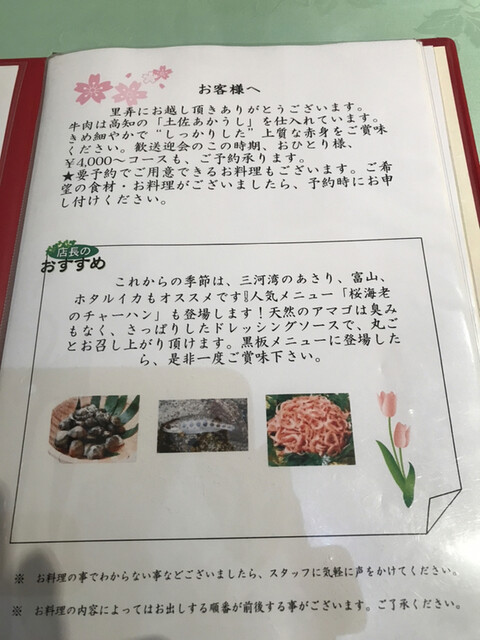 お客様へ
里弄にお越し頂きありがとうございます。
牛肉は高知の「土佐あかうし」を仕入れています。
きめ細やかで“しっかりした”上質な赤身をご賞味
ください。歓送迎会のこの時期、おひとり様、
¥4,000～コースも、ご予約承ります。
★要予約でご用意できるお料理もございます。ご希
望の食材・お料理がございましたら、予約時にお申
し付けください。
店長の
おすすめ
これからの季節は、三河湾のあさり、富山、
ホタルイカもオススメです!!人気メニュー「桜海老
のチャーハン」も登場します！天然のアマゴは臭み
もなく、さっぱりしたドレッシングソースで、丸ご
とお召し上がり頂けます。黒板メニューに登場した
ら、是非一度ご賞味下さい。
※ お料理の事でわからない事などございましたら、スタッフに気軽に声をかけてください。
※ お料理の内容によってはお出しする順番が前後する事がございます。ご了承ください。